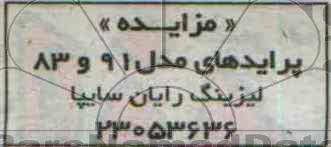 « مزایــده »
پرایدهای مدل ۹۱ و ۸۳
لیزینگ رایان سایپا
۲۳۰۵۳۶۳۶